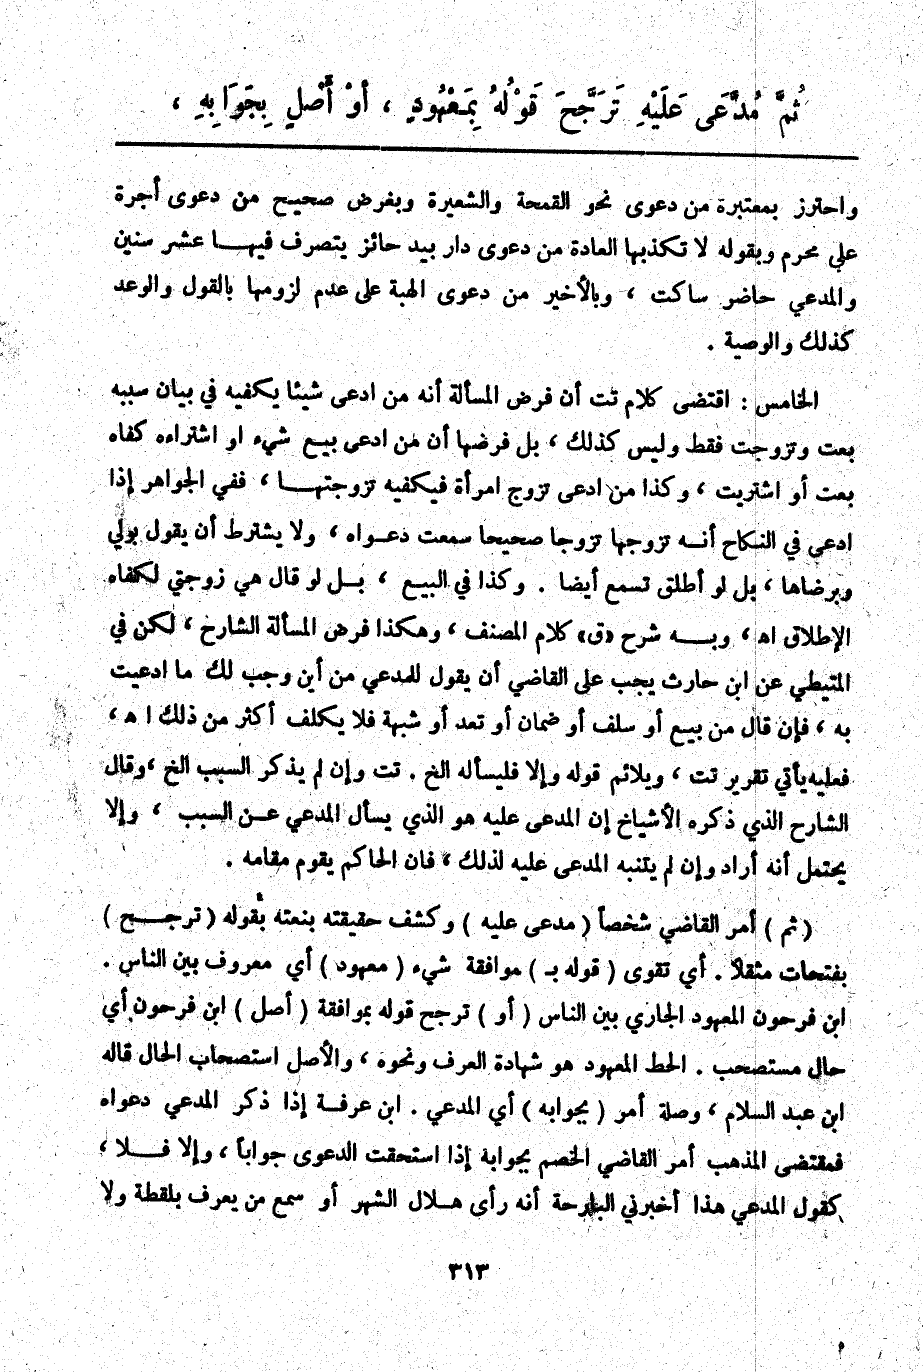 ثُمَّ مُدَّعَى عَلَيْهِ تَرَجَّحَ قَوْلُهُ بِمَعْهُودٍ ، أَوْ أَصْلٍ بِجَوَابِهِ ،
واحترز بمعتبرة من دعوى نحو القمحة والشعيرة وبغرض صحيح من دعوى أجرة
على محرم وبقوله لا تكذبها العادة من دعوى دار بيد حائز يتصرف فيهـــا عشر سنين
والمدعي حاضر ساكت ، وبالأخير من دعوى الهبة على عدم لزومها بالقول والوعد
كذلك والوصية .
الخامس : اقتضى كلام تت أن فرض المسألة أنه من ادعى شيئا يكفيه في بيان سببه
بعت وتزوجت فقط وليس كذلك ، بل فرضها أن من ادعى بيع شيء او اشتراءه كفاه
بعت أو اشتريت ، وكذا من ادعى تزوج امرأة فيكفيه تزوجتهـــا ، ففي الجواهر إذا
ادعى في النكاح أنـــه تزوجها تزوجا صحيحا سمعت دعـواه ، ولا يشترط أن يقول بولي
وبرضاها ، بل لو أطلق تسمع أيضا . وكذا في البيع ، بــل لو قال هي زوجتي لكفاه
الإطلاق اه ، وبـــه شرح «ق» كلام المصنف ، وهكذا فرض المسألة الشارح ، لكن في
المتيطي عن ابن حارث يجب على القاضي أن يقول للمدعي من أين وجب لك ما ادعيت
به ، فإن قال من بيع أو سلف أو ضمان أو تعد أو شبهة فلا يكلف أكثر من ذلك ا ه ،
فعليه يأتي تقرير تت ، ويلائم قوله وإلا فليسأله الخ . تت وإن لم يذكر السبب الخ ،وقال
الشارح الذي ذكره الأشياخ إن المدعى عليه هو الذي يسأل المدعي عـن السبب ، وإلا
يحتمل أنه أراد وإن لم يتنبه المدعى عليه لذلك ، فان الحاكم يقوم مقامه .
( ثم ) أمر القاضي شخصاً ( مدعى عليه ) وكشف حقيقته بنعته بقوله ( ترجـــح )
بفتحات مثقلاً . أي تقوى ( قوله بـ ) موافقة شيء ( معهود ) أي معروف بين الناس .
ابن فرحون المعهود الجاري بين الناس ( أو ) ترجح قوله بموافقة ( أصل ) ابن فرحون أي
حال مستصحب . الحط المعهود هو شهادة العرف ونحوه ، والأصل استصحاب الحال قاله
ابن عبد السلام ، وصلة أمر ( بجوابه ) أي المدعي . ابن عرفـة إذا ذكر المدعي دعواه
فمقتضى المذهب أمر القاضي الخصم بجوابة إذا استحقت الدعوى جواباً ، وإلا فـــلا ،
كقول المدعي هذا أخبرني البارحة أنه رأى هـلال الشهر أو سمع من يعرف بلقطة ولا
٣١٣